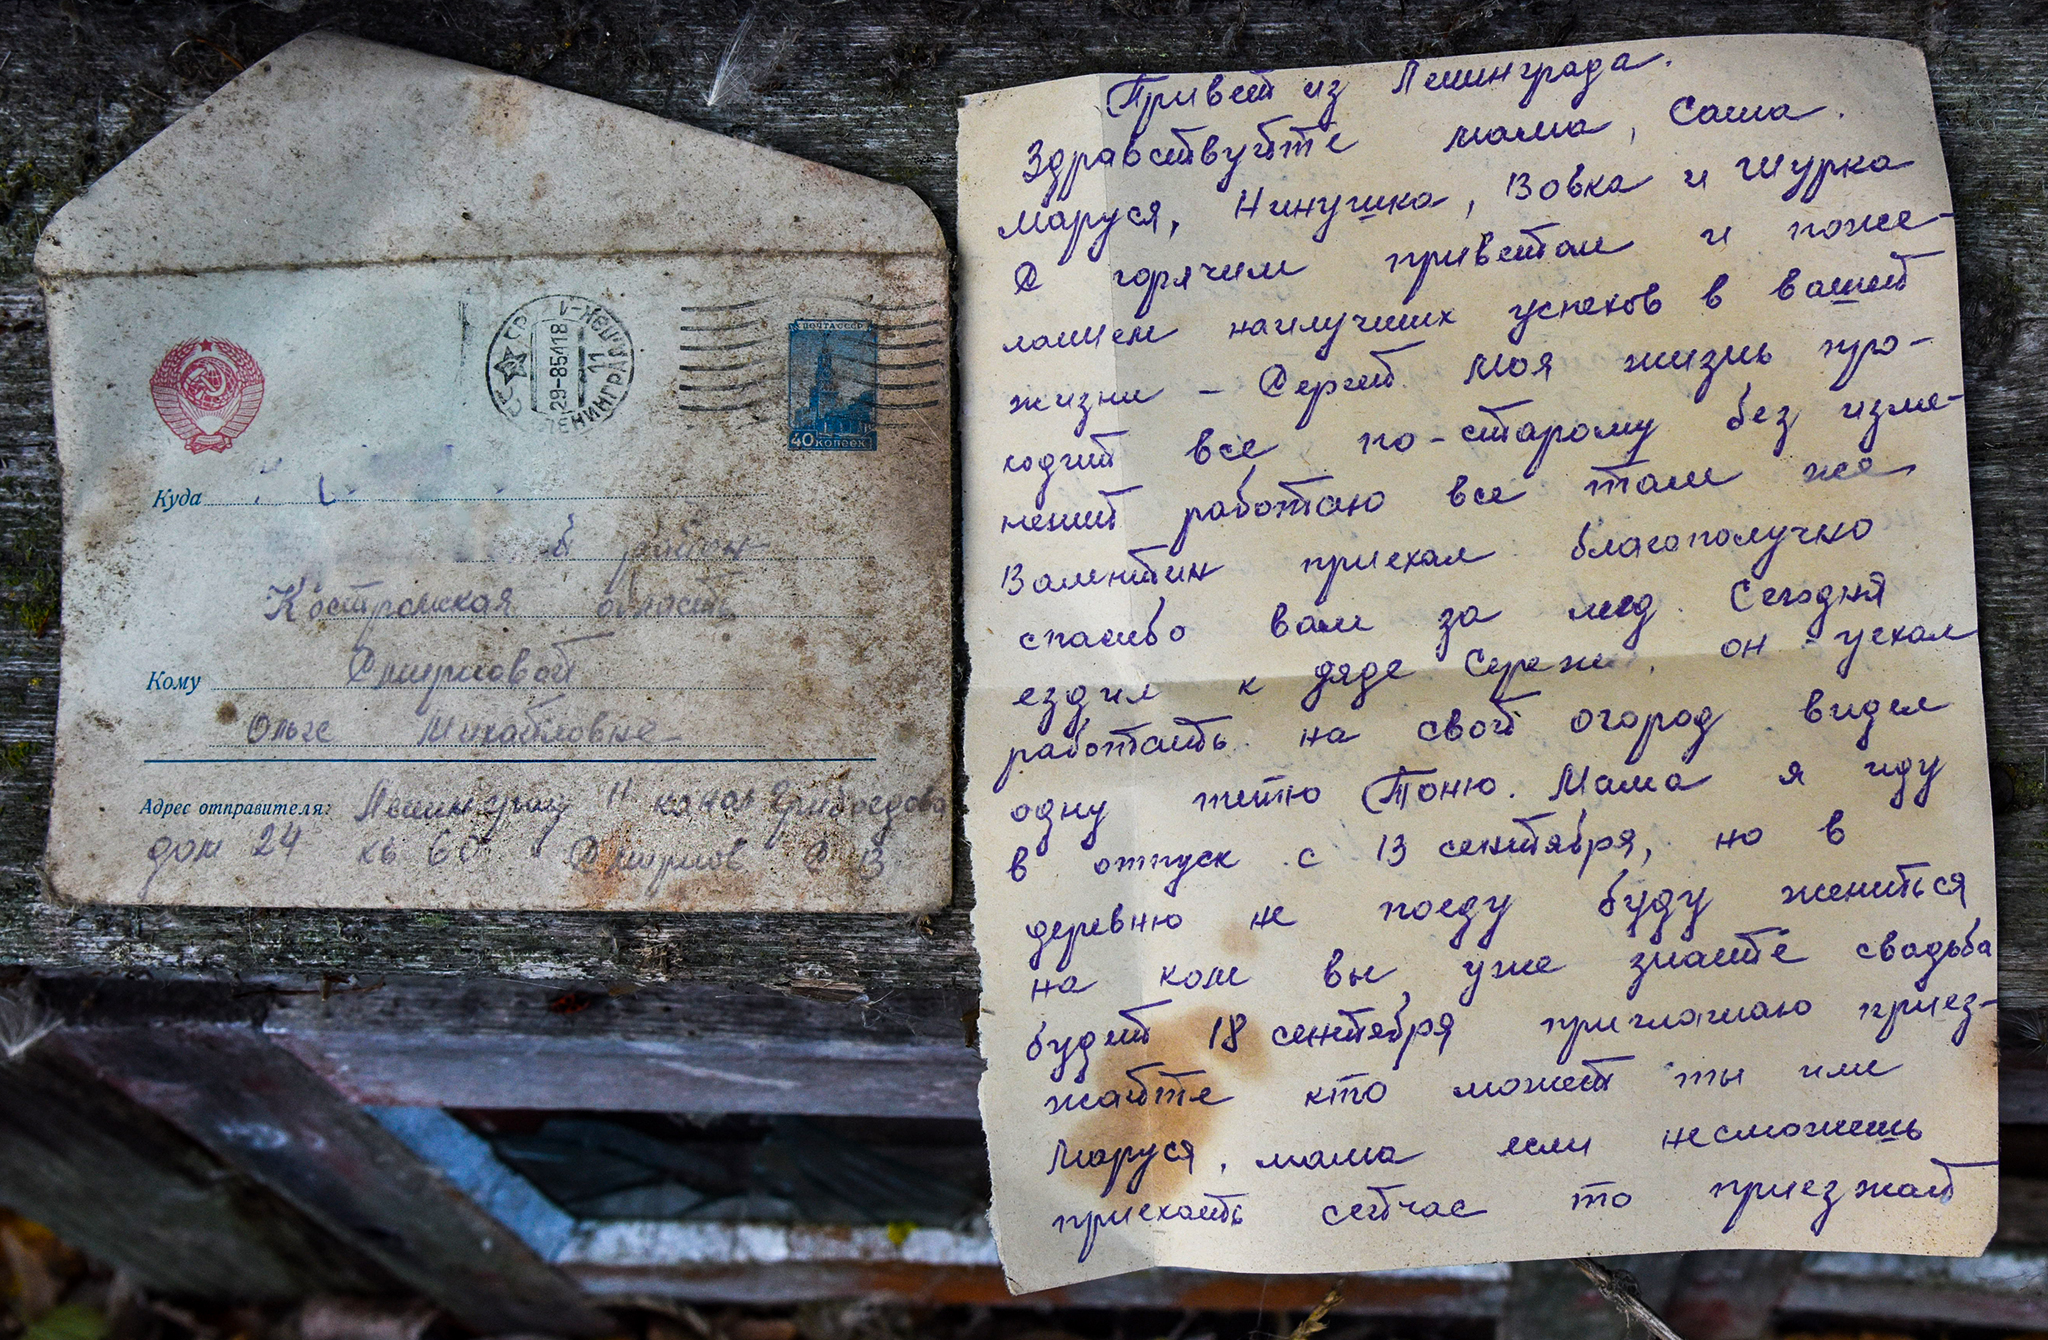 ПОЧТА СССР
40 КОПЕЕК
29-85418
11
ЛЕНИНГРАД
Куда
район
Костромская область
Кому Смирновой
Ольге Михайловне
Адрес отправителя: Ленинград Н канал Грибоедова
дом 24 кв 60 Смирнов С В
Привет из Ленинграда.
Здравствуйте мама, Саша.
Маруся, Нинушка, Вовка и Шурка
С горячим приветом и поже-
ланием наилучших успехов в вашей
жизни - Сергей. Моя жизнь про-
ходит все по-старому без изме-
нений работаю все там же
Валентин приехал благополучно
спасибо вам за мед. Сегодня
ездил к дяде Сереже, он уехал
работать на свой огород видел
одну тетю Тоню. Мама я иду
в отпуск с 13 сентября, но в
деревню не поеду буду жениться
на ком вы уже знаете свадьба
будет 18 сентября приглашаю приез-
жайте кто может ты или
Маруся, мама если несможешь
приехать сейчас то приезжай